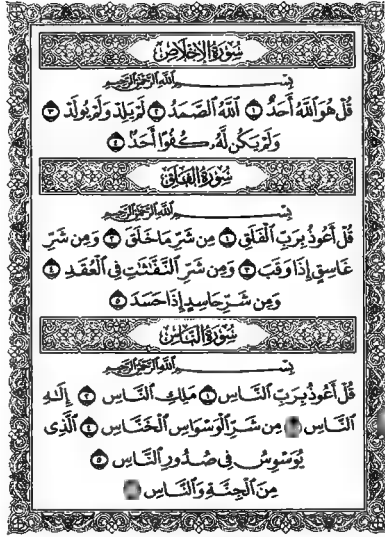 سُورَةُ الإِخْلَاصِ
بِسْمِ اللَّهِ الرَّحْمَٰنِ الرَّحِيمِ
قُلْ هُوَ اللَّهُ أَحَدٌ ١ اللَّهُ الصَّمَدُ ٢ لَمْ يَلِدْ وَلَمْ يُولَدْ ٣
وَلَمْ يَكُن لَّهُ كُفُوًا أَحَدٌ ٤
سُورَةُ الْفَلَقِ
بِسْمِ اللَّهِ الرَّحْمَٰنِ الرَّحِيمِ
قُلْ أَعُوذُ بِرَبِّ الْفَلَقِ ١ مِن شَرِّ مَا خَلَقَ ٢ وَمِن شَرِّ
غَاسِقٍ إِذَا وَقَبَ ٣ وَمِن شَرِّ النَّفَّٰثَٰتِ فِي الْعُقَدِ ٤
وَمِن شَرِّ حَاسِدٍ إِذَا حَسَدَ ٥
سُورَةُ النَّاسِ
بِسْمِ اللَّهِ الرَّحْمَٰنِ الرَّحِيمِ
قُلْ أَعُوذُ بِرَبِّ النَّاسِ ١ مَلِكِ النَّاسِ ٢ إِلَٰهِ
النَّاسِ مِن شَرِّ الْوَسْوَاسِ الْخَنَّاسِ ٤ الَّذِي
يُوَسْوِسُ فِي صُدُورِ النَّاسِ ٥
مِنَ الْجِنَّةِ وَالنَّاسِ